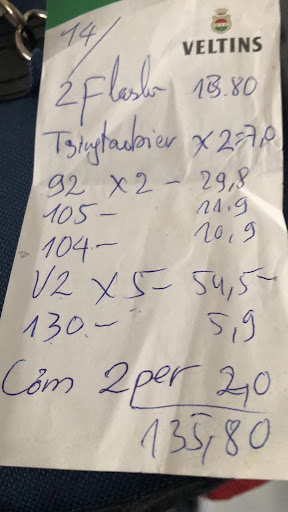 14/
VELTINS
2 Flasch 13.80
Tsingtaobier x 2 = 7,0
92 x 2 - 29,8
105 - 11.9
104 - 10,9
V2 x 5 - 54,5-
130 - 5,9
Côm 2 per 2,0
135,80